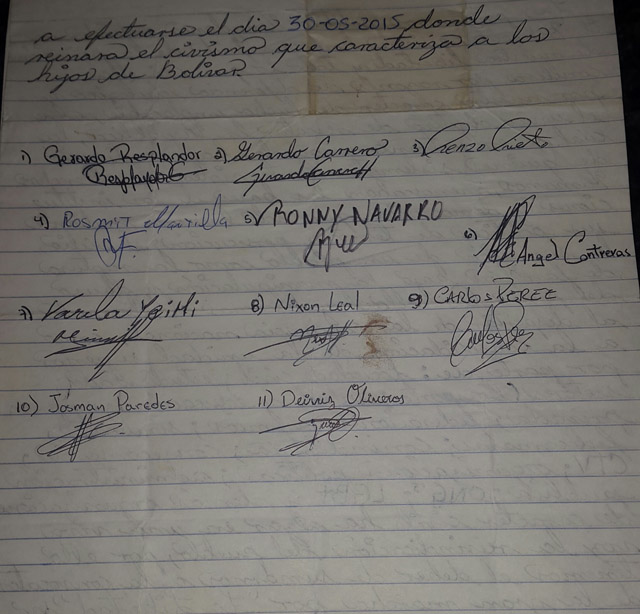 a efectuarse el dia 30-05-2015 donde
reinara el civismo que caracteriza a los
hijos de Bolivar.
1) Gerardo Resplandor 2) Gerardo Carrero 3) Renzo Prieto
4) Rosmit 5) RONNY NAVARRO
6) Angel Contreras
7) Varela Yeiti 8) Nixon Leal 9) CARLOS PEREZ
10) Jósman Paredes 11) Deivis Oliveros